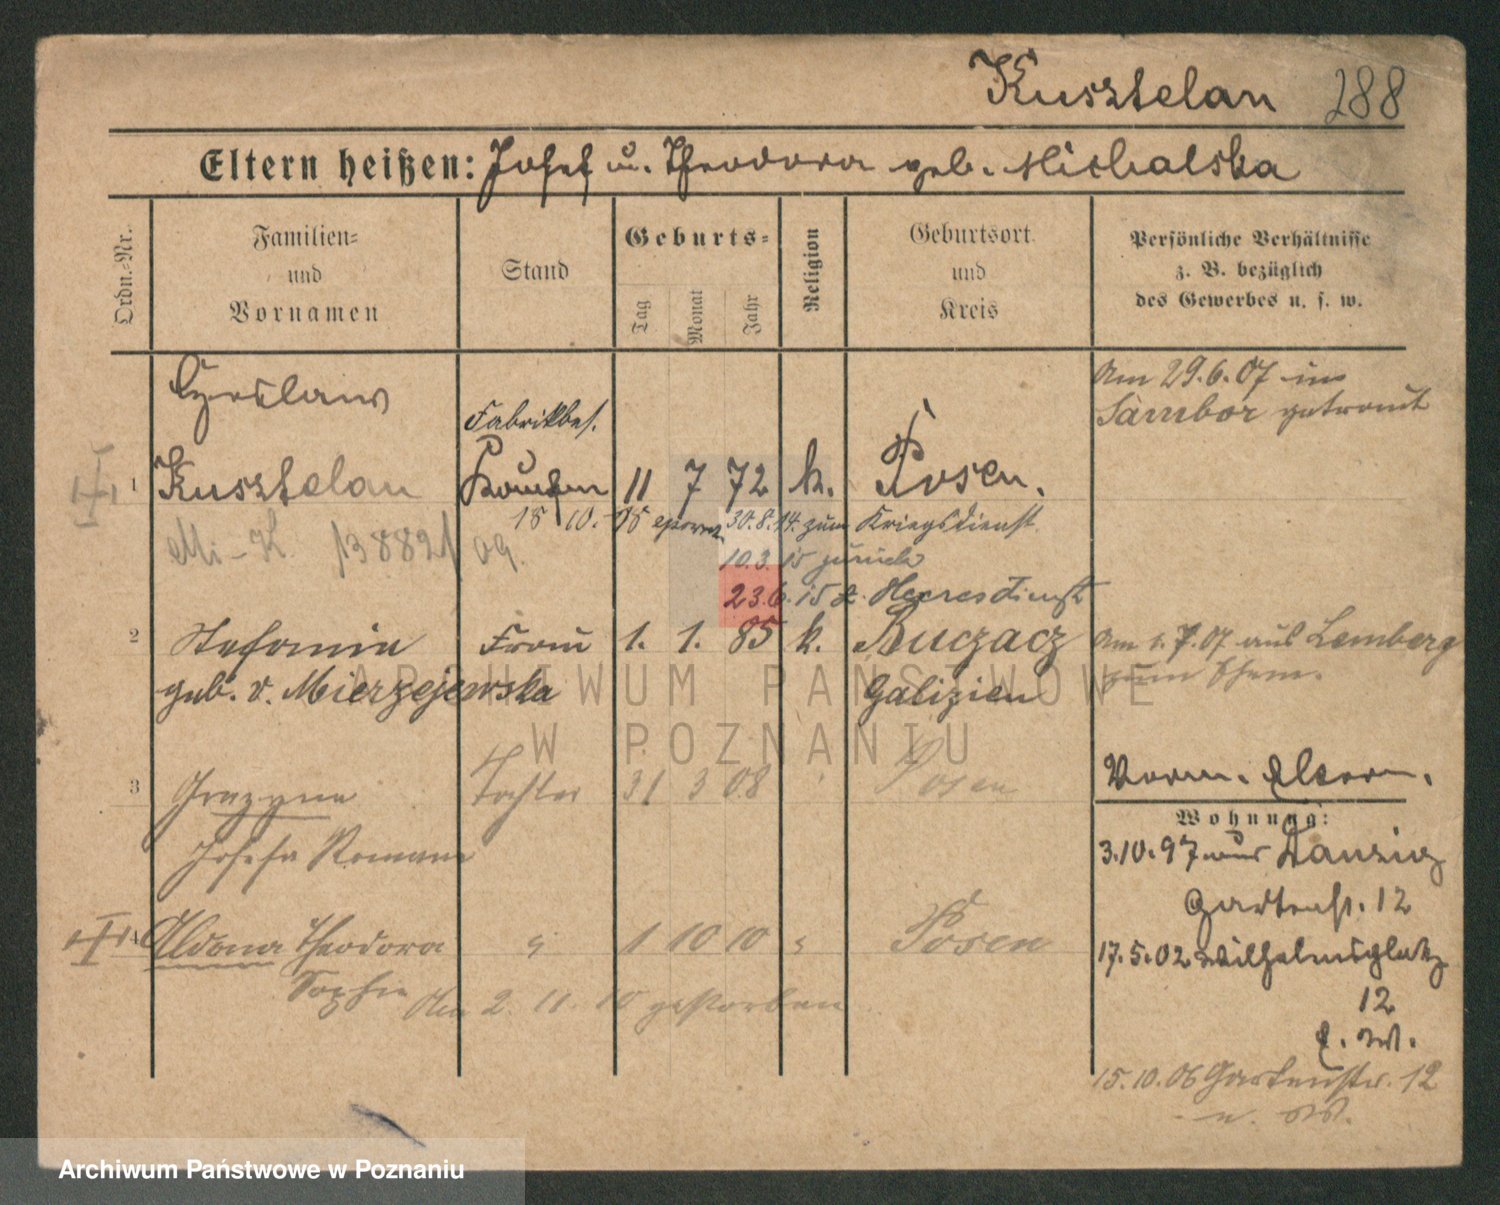 Kusztelan 288
Eltern heißen: Josef u. Theodora geb. Michalska
Ordn.-Nr.
Familien-
und
Vornamen
Stand
Geburts-
Tag
Monat
Jahr
Religion
Geburtsort
und
Kreis
Persönliche Verhältnisse
z. B. bezüglich
des Gewerbes u. s. w.
Czeslaus
Am 29.6.07 in
Sambor getraut
Fabrikbes.
1 Kusztelan Kaufm 11 7 72 k. Posen.
18 10. 98 30.8.14. zum Kriegsdienst
Mi-K. 13882/09.
10.3.15 zurück
23.6.15 z. Heeresdienst
2 Stefania Frau 1. 1. 85 k. Buczacz
geb. v. Mierzejewska Galizien
Am 1.7.07 aus Lemberg
zum Ehem.
3 Grazyna Tochter 31 3 08 Posen
Josefa Romana
Vorm. Eltern.
Wohnung:
3.10.97 aus Danzig
Gartenst. 12
4 Aldona Theodora 1 10 10 Posen
Sophie
Am 2. 11. 10 gestorben
17.5.02 Wilhelmsplatz
12
E. W.
15.10.06 Gartenstr. 12
ARCHIWUM PAŃSTWOWE
W POZNANIU
Archiwum Państwowe w Poznaniu